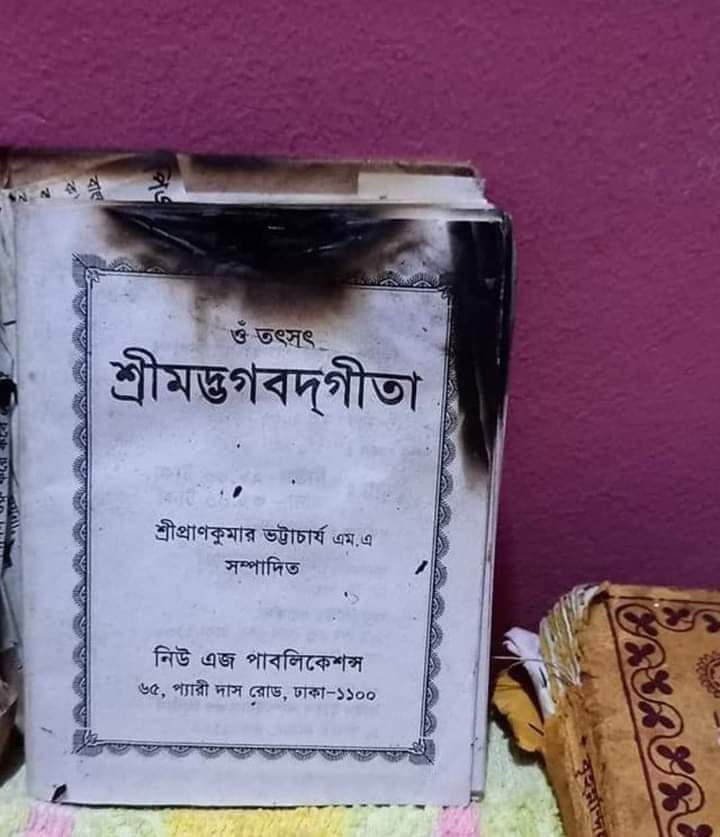 ওঁ তৎসৎ
শ্রীমদ্ভগবদ্‌গীতা
শ্রীপ্রাণকুমার ভট্টাচার্য এম.এ
সম্পাদিত
নিউ এজ পাবলিকেশন্স
৬৫, প্যারী দাস রোড, ঢাকা-১১০০